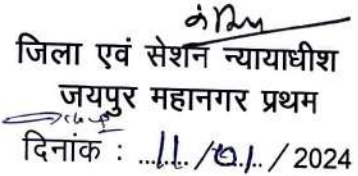 जिला एवं सेशन न्यायाधीश
जयपुर महानगर प्रथम
दिनांक : ...11.../01./ 2024